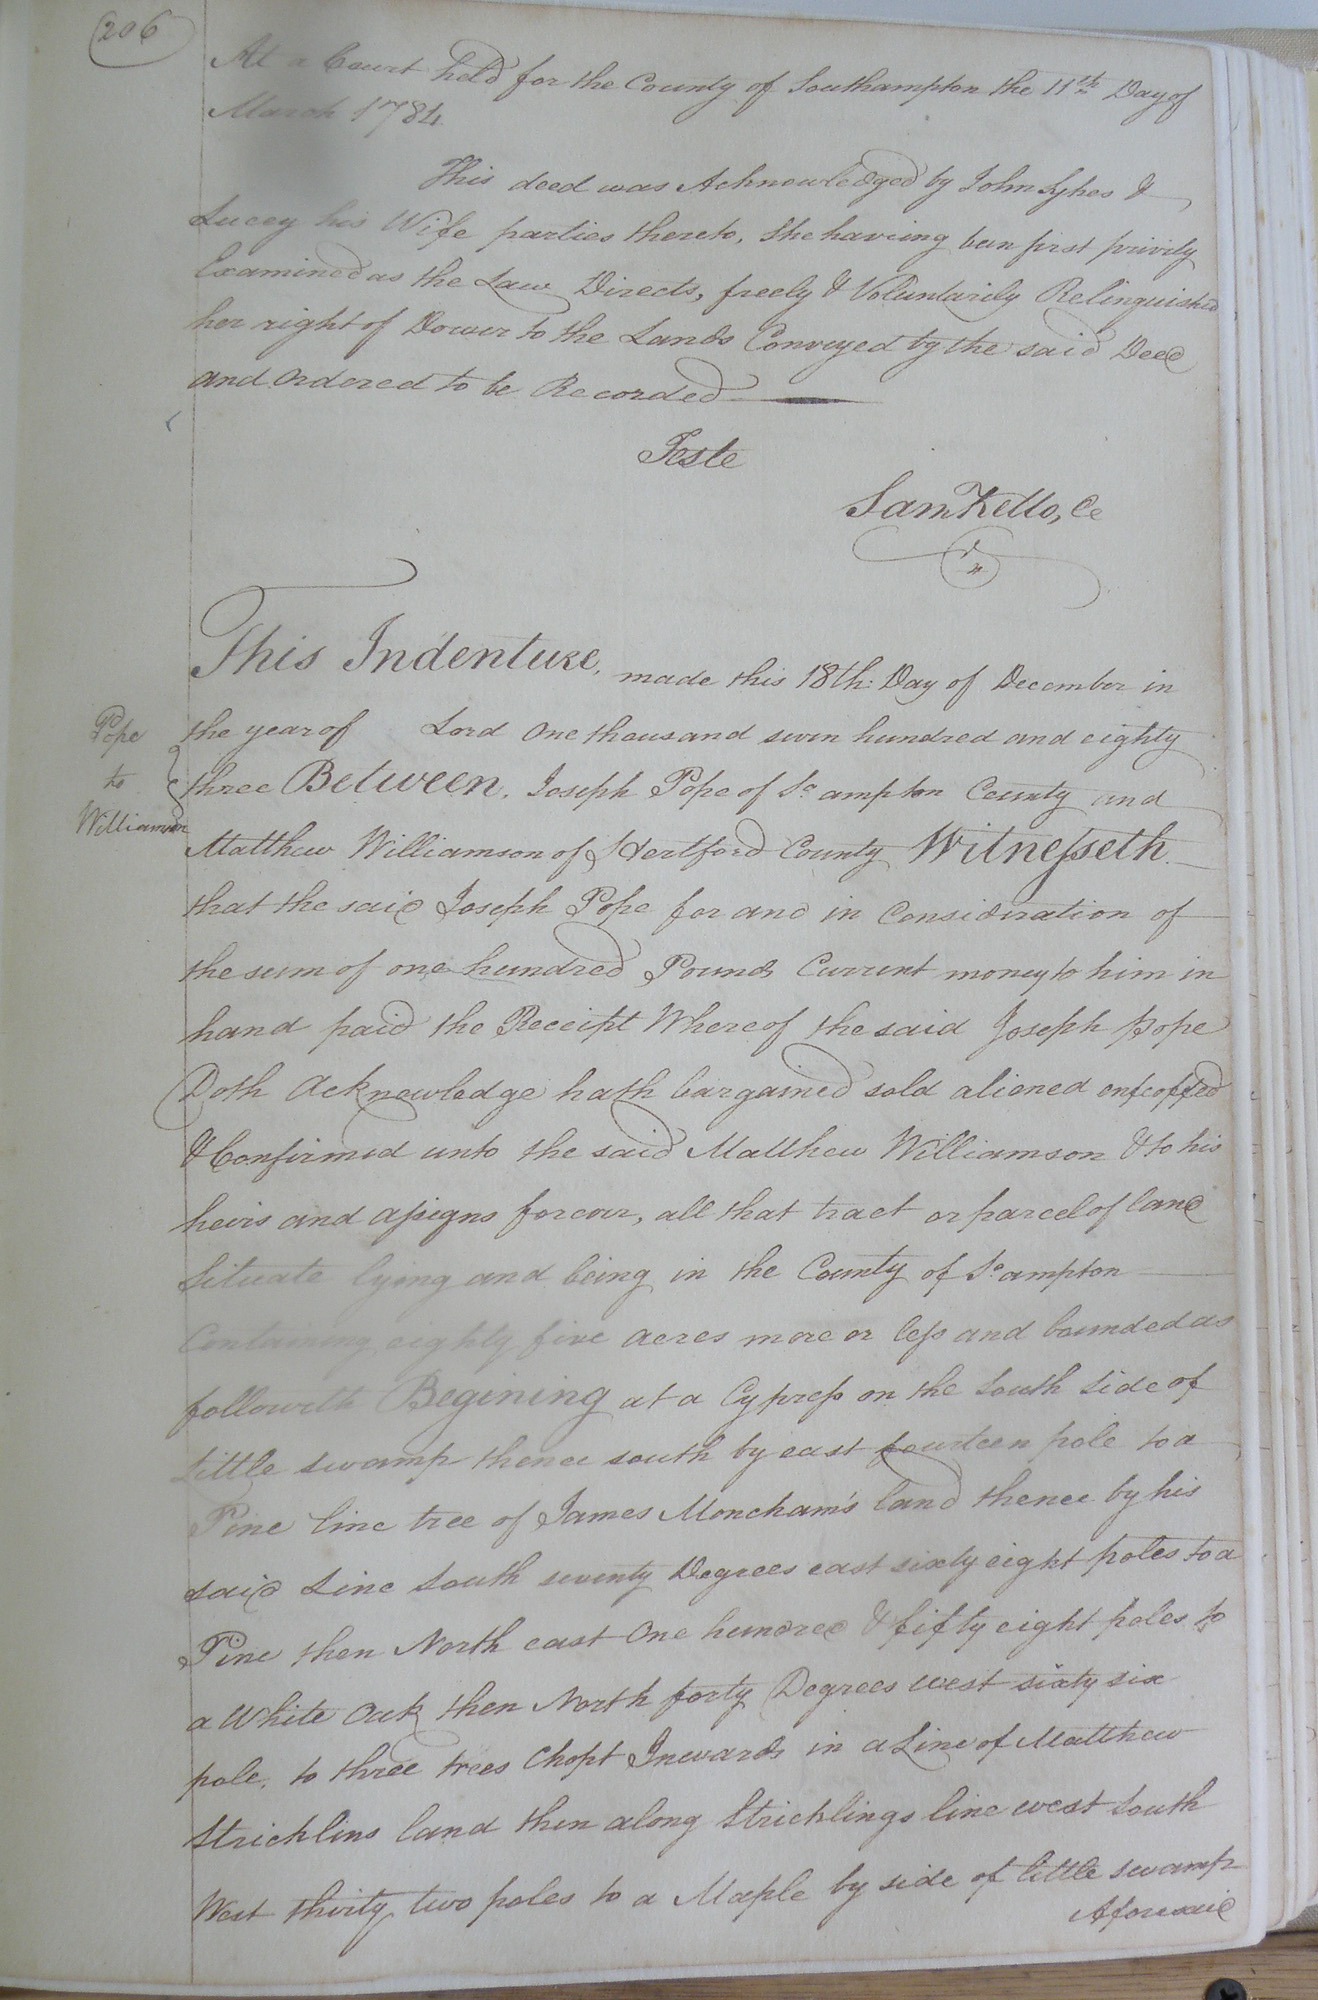 206
At a Court held for the County of Southampton the 11th Day of
March 1784
This deed was Acknowledged by John Sykes &
Lucey his Wife parties thereto, She haveing been first privily
Examined as the Law Directs, freely & Voluntarily Relinquished
her right of Dower to the Lands Conveyed by the said Deed
and Ordered to be Recorded
Teste
Sam Kello, Cc
This Indenture, made this 18th: Day of December in
the year of Lord One thousand seven hundred and eighty
Pope
to
Williamson
three Between, Joseph Pope of So ampton County and
Matthew Williamson of Hertford County Witnesseth
that the said Joseph Pope for and in Consideration of
the sum of one hundred Pounds Current money to him in
hand paid the Receipt Whereof the said Joseph Pope
Doth Acknowledge hath bargained sold aliened enfeoffed
& Confirmed unto the said Matthew Williamson & to his
heirs and assigns forever, all that tract or parcel of land
Situate lying and being in the County of So ampton
Containing eighty five acres more or less and bounded as
followeth Begining at a Cypress on the South Side of
Little swamp thence south by east fourteen pole to a
Pine line tree of James Moncham's land thence by his
said Line South seventy Degrees east sixty eight poles to a
Pine then North east One hundred & fifty eight poles to
a White Oak then North forty Degrees west sixty six
pole, to three trees Chopt Inwards in a Line of Matthew
Stricklins land then along Stricklings line west South
West thirty two poles to a Maple by side of little swamp
Aforesaid